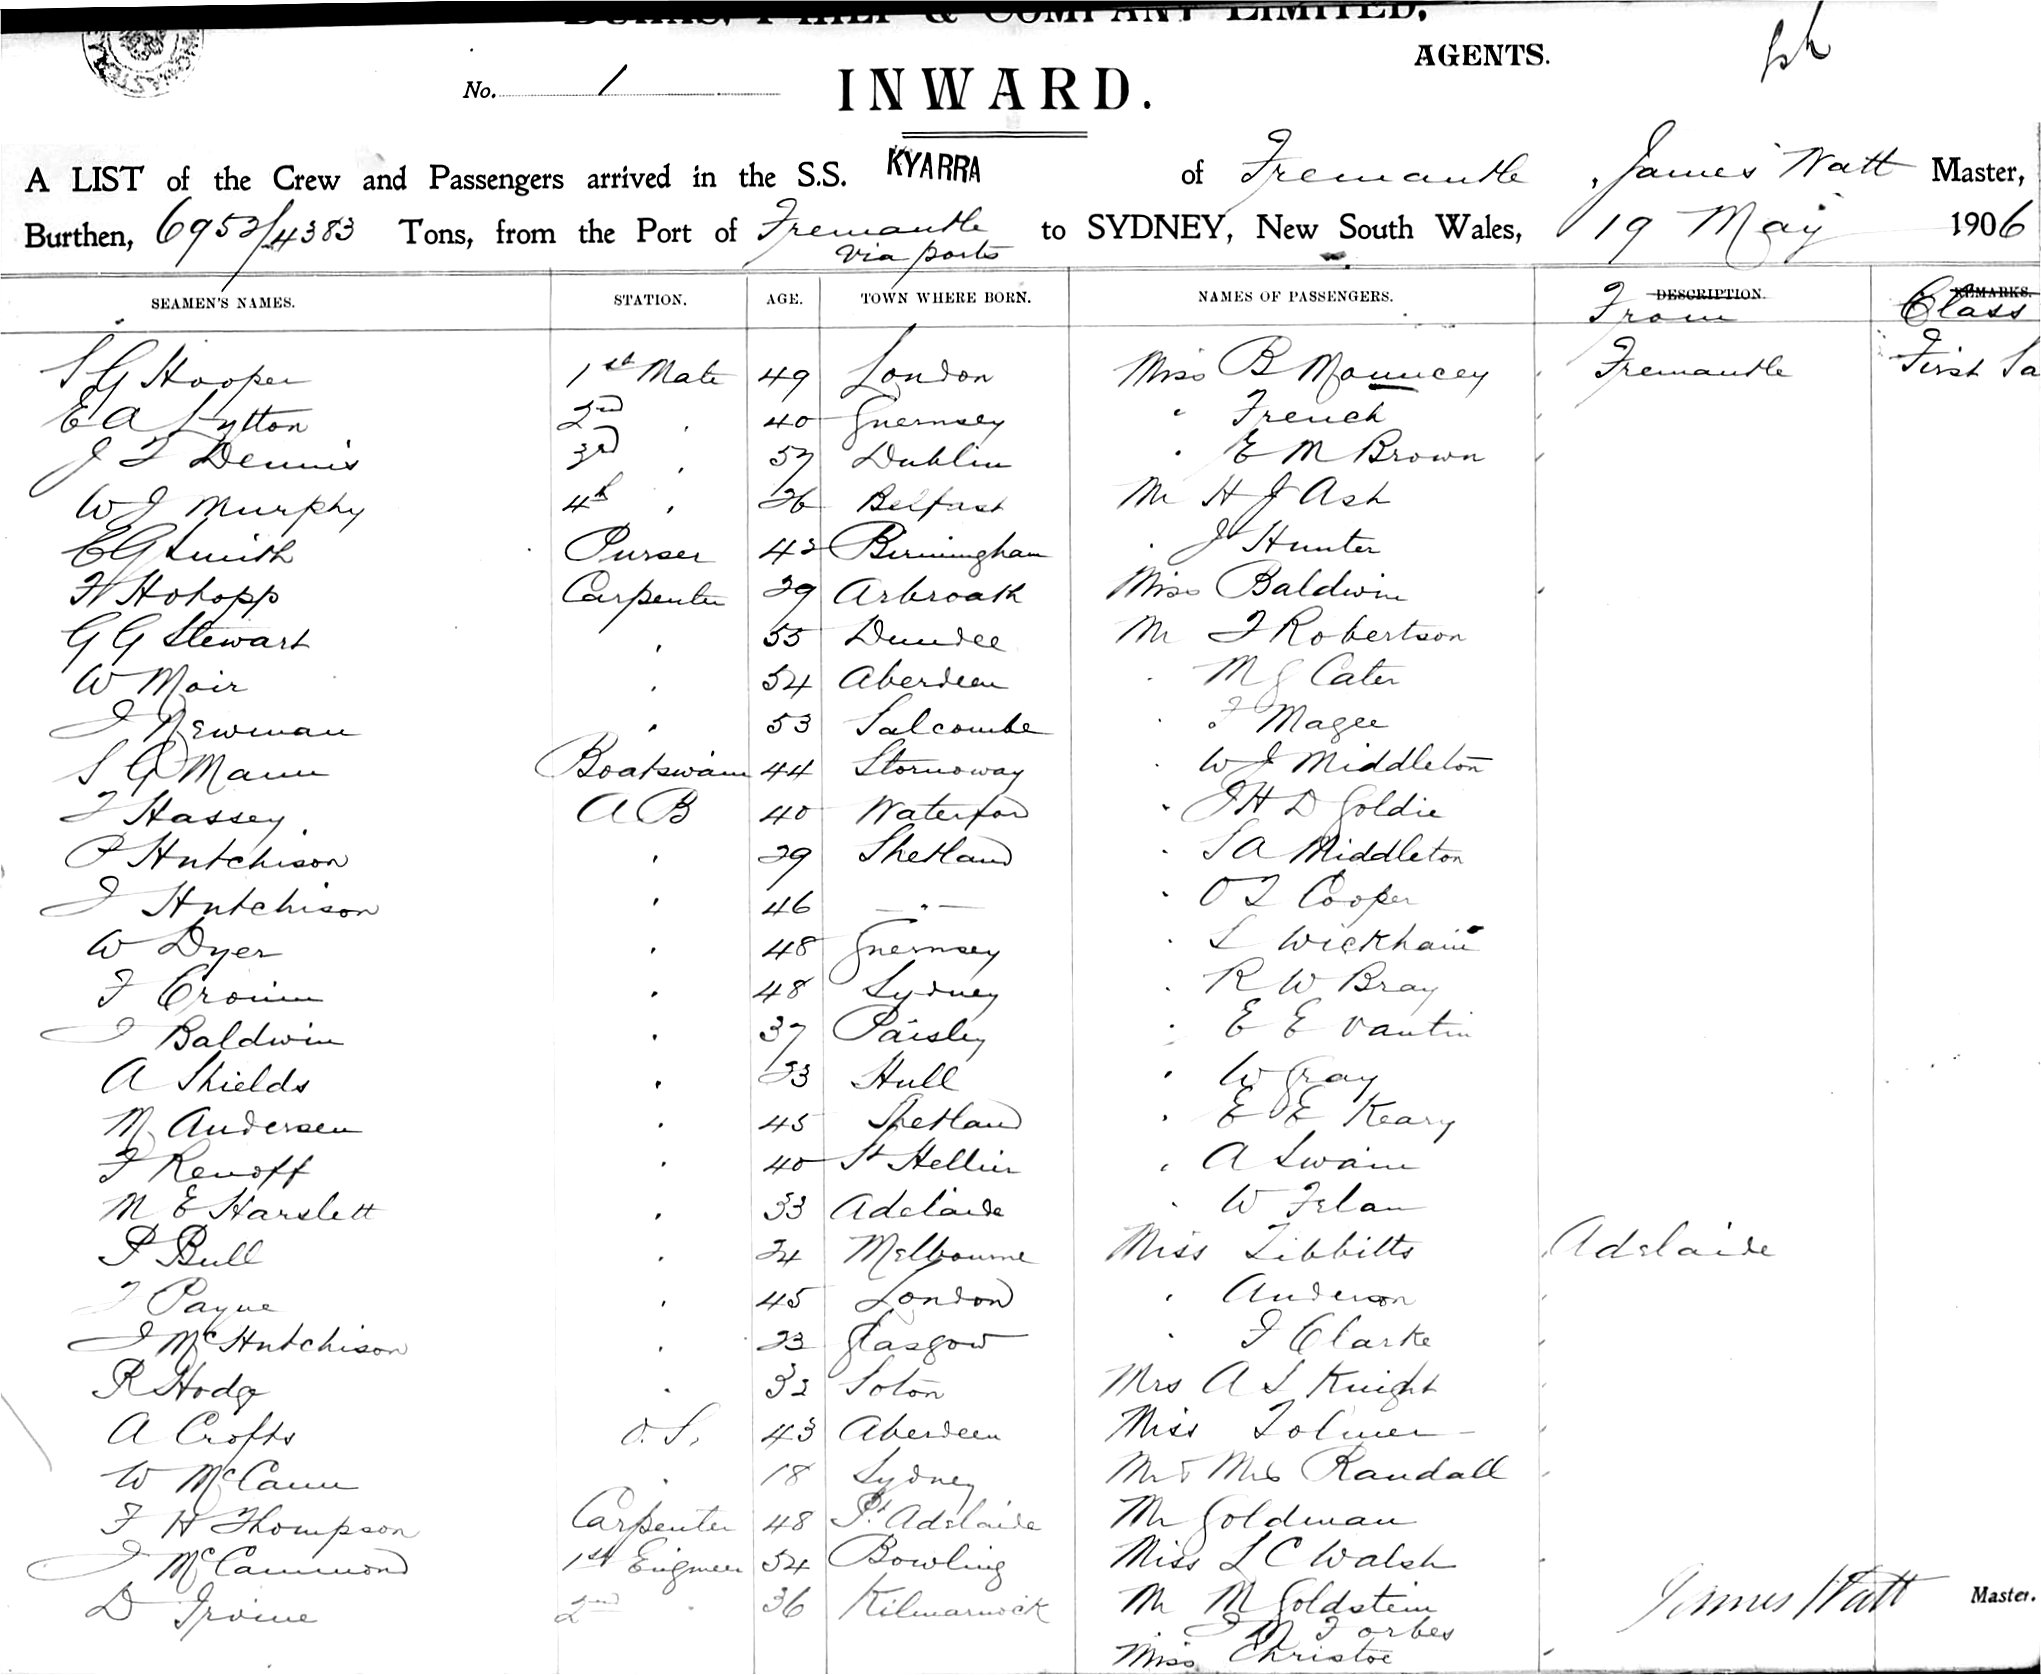 BURNS, PHILP & COMPANY LIMITED,
AGENTS.
No. 1
INWARD.
A LIST of the Crew and Passengers arrived in the S.S. KYARRA of Fremantle, James Watt Master,
Burthen, 6953/4383 Tons, from the Port of Fremantle via ports to SYDNEY, New South Wales, 19 May 1906
SEAMEN'S NAMES. STATION. AGE. TOWN WHERE BORN. NAMES OF PASSENGERS. DESCRIPTION. From REMARKS. Class
S G Hooper 1st Mate 49 London Miss B Mouncey Fremantle First Sa
E A Lytton 2nd " 40 Guernsey " French
J F Dennis 3rd " 57 Dublin " E M Brown
W J Murphy 4th " 26 Belfast Mr H J Ash
E G Smith Purser 42 Birmingham " J Hunter
F Hohopp Carpenter 29 Arbroath Miss Baldwin
G G Stewart " 55 Dundee Mr F Robertson
W Moir " 54 Aberdeen " M J Cater
J Newman " 53 Salcombe " F Magee
S G Mann Boatswain 44 Stornoway " W J Middleton
F Hassey A B 40 Waterford " J H D Goldie
P Hutchison " 29 Shetland " S A Middleton
J Hutchison " 46 —"— " O L Cooper
W Dyer " 48 Guernsey " L Wickham
F Cronin " 48 Sydney " R W Bray
J Baldwin " 37 Paisley " E E Vautin
A Shields " 23 Hull " W Gray
M Andersen " 45 Shetland " E E Keary
F Renoff " 40 St Hellier " A Swain
M E Harslett " 33 Adelaide " W Felan
P Bull " 24 Melbourne Miss Tibbitts Adelaide
F Payne " 45 London " Anderson
J McHutchison " 23 Glasgow " F Clarke
R Hodge " 32 Soton Mrs A S Knight
A Crofts O.S. 43 Aberdeen Miss Tolmer
W McCann " 18 Sydney Mr & Mrs Randall
F H Thompson Carpenter 48 Pt Adelaide Mr Goldman
J McCammond 1st Engineer 54 Bowling Miss L C Walsh
D Irvine 2nd " 36 Kilmarnock Mr M Goldstein James Watt Master.
" J M Forbes
Miss Christoe